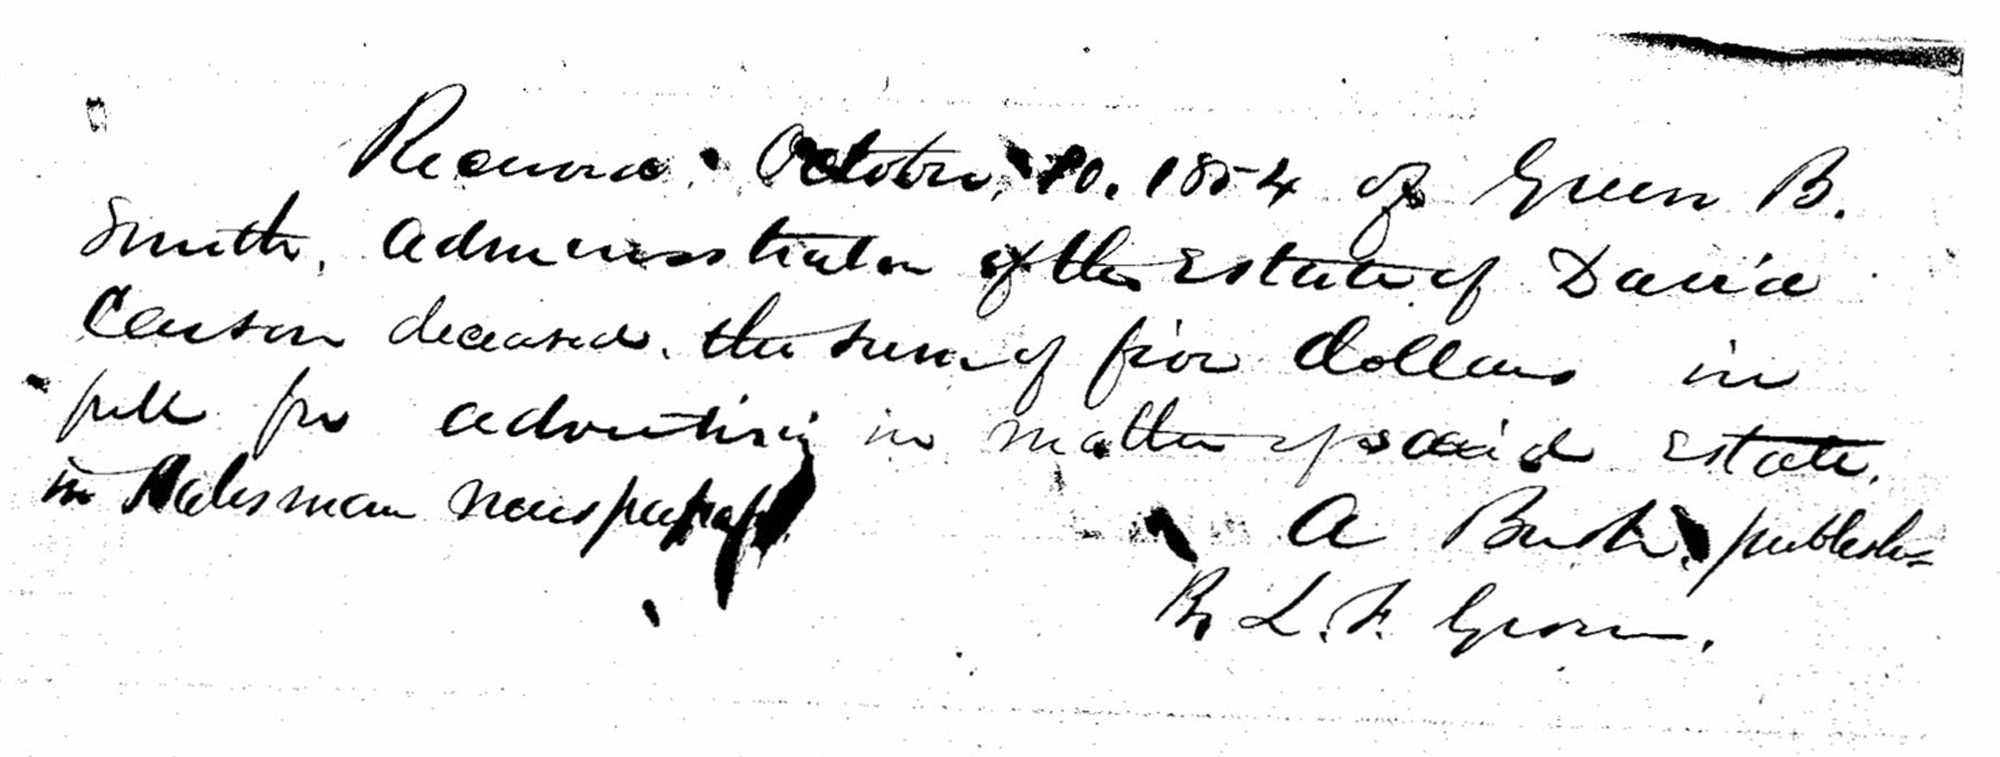 Received, October, 10. 1854 of Green B.
Smith, Administrator of the Estate of David
Carson deceased. the sum of five dollars in
full for advertising in matter of said Estate.
in Statesman newspaper
A Bush, publisher
By L. F. Grover.